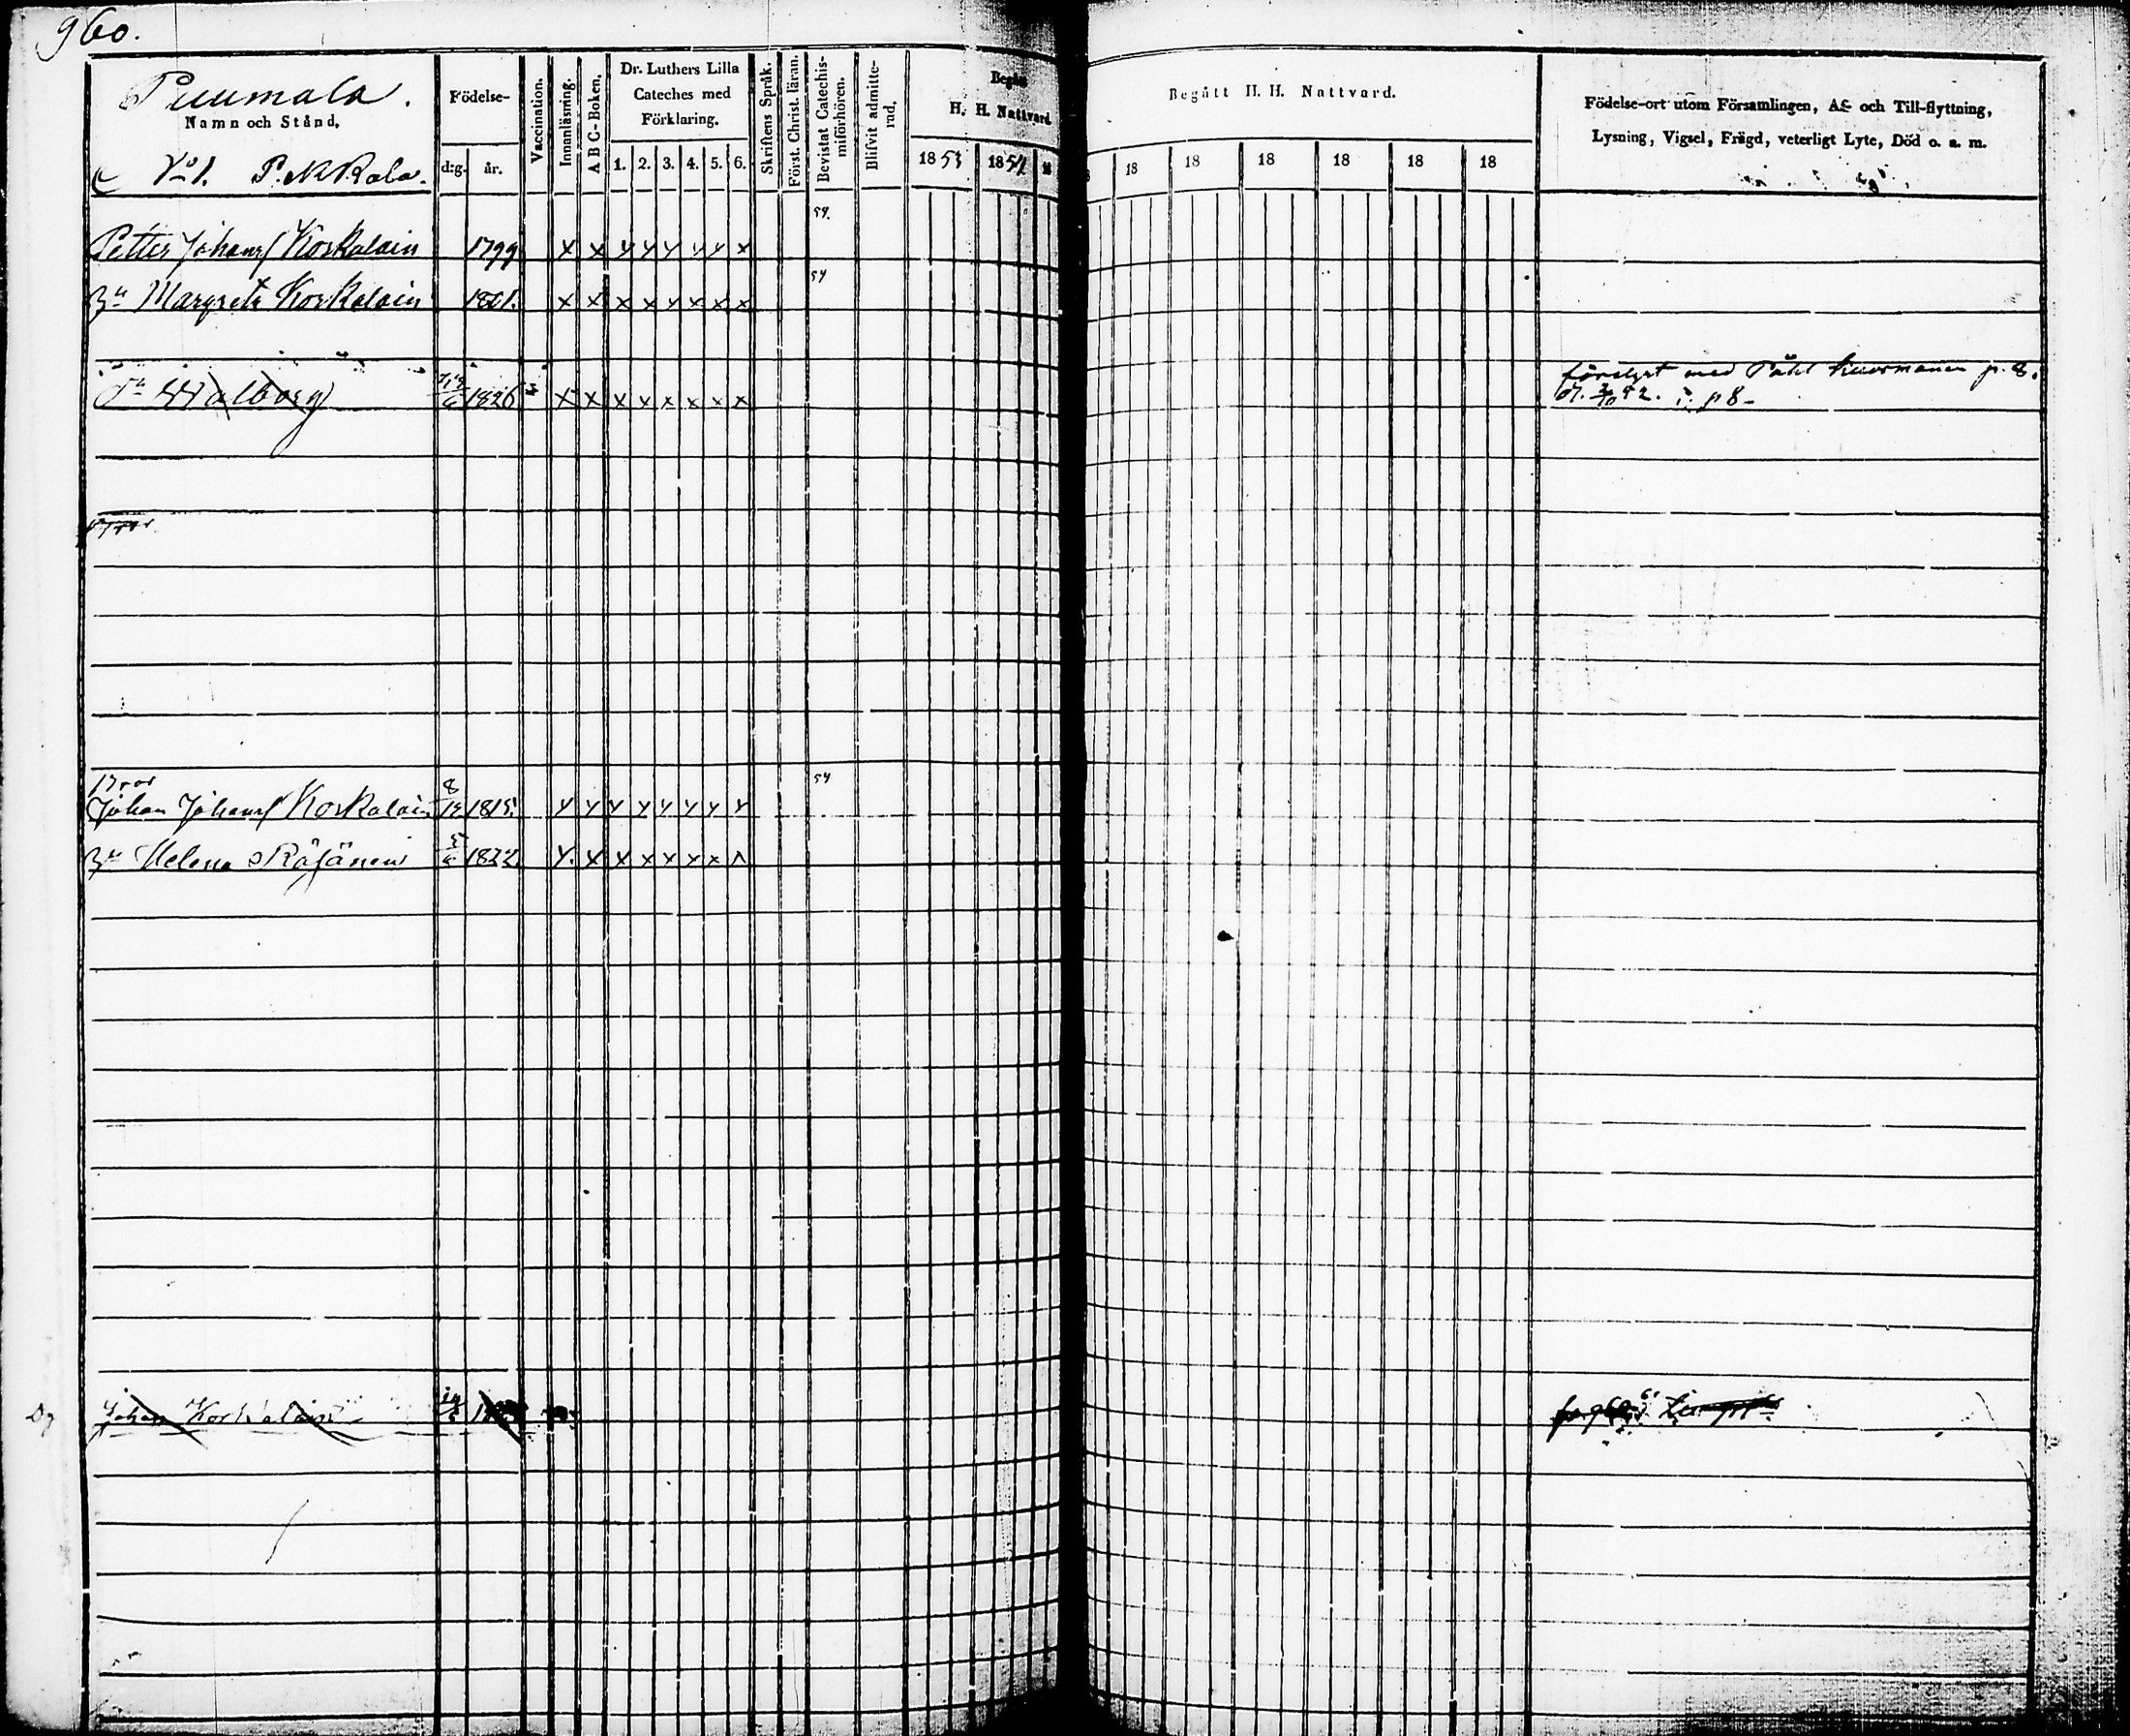 960.
Puumala.
Namn och Stånd,
No 1. Pekkala.
Födelse-
d:g. år.
Vaccination.
Innanläsning.
A B C-Boken.
Dr. Luthers Lilla
Cateches med
Förklaring.
1. 2. 3. 4. 5. 6.
Skriftens Språk.
Först. Christ. läran.
Bevistat Catechis-
miförhören.
Blifvit admitte-
rad,
Begått
H. H. Nattvard
1853 1854 18
Begått H. H. Nattvard.
18 18 18 18 18 18
Födelse-ort utom Församlingen, Af- och Till-flyttning,
Lysning, Vigsel, Frägd, veterligt Lyte, Död o. s. m.
54.
Petter Johans Koskalain 1799 x x y y y y y x
54
Margreta Koskalain 1801. x x x x x x x x
Walborg 1826 x x x x x x x x
med Påhl p. 8.
p 8
Bror 54
Johan Johans Koskalain 8/12 1815. y y y y y y y y
Helena Räsänen 1822 y. x x x x x x
Johan Koskalain